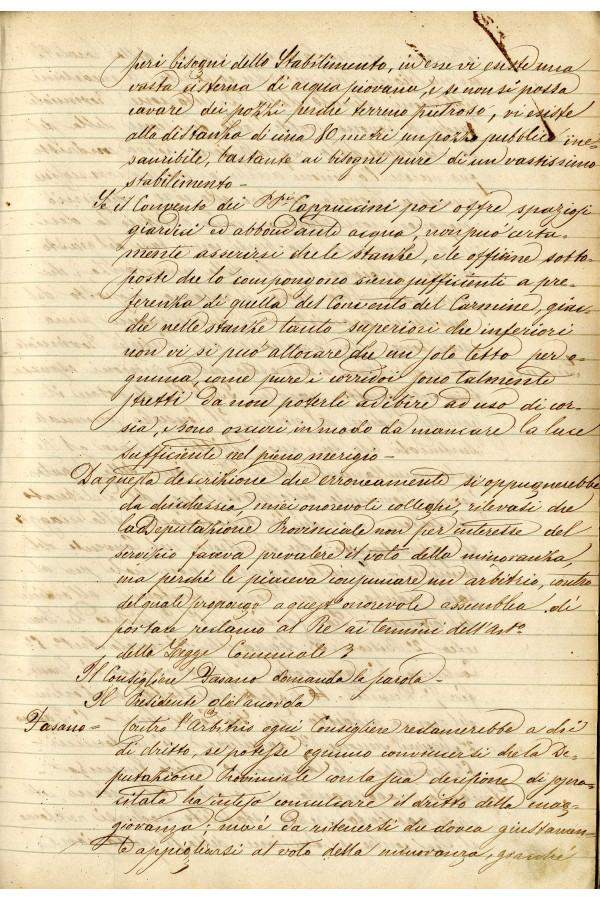 pei bisogni dello Stabilimento, in ene vi esiste una
vasta cisterna di acqua piovana, e se non si possa
cavare dei pozzi perché terreno petroso, vi esiste
alla distanza di una 80 metri un pozzo pubblico ine-
sauribile, bastante ai bisogni pure di un vastissimo
stabilimento -
Se il Convento dei PP.ri Cappuccini poi offre spaziosi
giardini ed abbondante acqua, non può certa-
mente asserirsi che le stanze, e le officine sotto-
poste che lo compongono sieno sufficienti a pre-
ferenza di quella del Convento del Carmine, giac-
ché nelle stanze tanto superiori che inferiori
non vi si può allocare che un solo letto per o-
gnuna, come pure i corridoi sono talmente
stretti da non poterli adibire ad uso di cor-
sia, e sono oscuri in modo da mancare la luce
sufficiente nel pieno merigio -
Da questa descrizione che erroneamente si oppugnerebbe
da chichessia, miei onorevoli colleghi, rilevasi che
la Deputazione Provinciale non per interesse del
servizio faceva prevalere il voto della minoranza,
ma perché le piaceva consumare un arbitrio, contro
del quale propongo a quest'onorevole assemblea di
portare reclamo al Re ai termini dell'Art.o
della Legge Comunale 3
Il Consigliere Fasano domanda la parola -
Il Presidente gliel'accorda
Fasano = Contro l'arbitrio ogni Consigliere reclamerebbe a doi
di dritto, se potesse ognuno convincersi che la De-
putazione Provinciale con la sua decisione di sopra
citata ha inteso conculcare il dritto della mag-
gioranza; ma è da ritenersi che dovea giustamen-
te appigliarsi al voto della minoranza, giacché